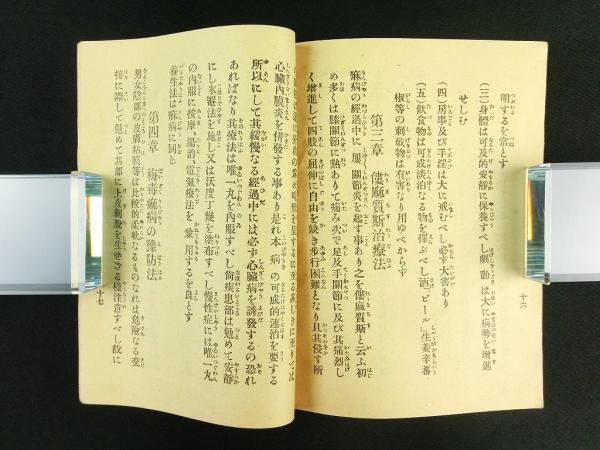 明するを常とす
(三)身體は可及的安靜に保養すべし劇動は大に病勢を增進
せしむ
(四)房事及び手淫は大に戒むべし必ず大害あり
(五)飮食物は可成淡泊なる物を擇ぶべし酒「ビール」生姜辛蕃
椒等の刺戟物は有害なり用ゆべからず
第三章 僂麻質斯治療法
痳病の經過中に屢關節炎を起す事あり之を僂麻質斯と云ふ初
め多くは膝關節に熱ありて痛み次で足及手關節に及び其痛烈し
く增進して四肢の屈伸に自由を缺き步行困難となり且其侵す所
十六
心臟內膜炎を併發する事あり是れ本病の可成的速治を要する
所以にして其緩慢なる經過中には必ず心臟病を誘發するの恐れ
あればなり其療法は唯一丸を內服すべし尙疾患部は勉めて安靜
にし氷罨法を施し又は沃度丁幾を塗布すべし慢性症には唯一丸
の內服に按摩、湯治、電氣療法を兼用するを良とす
養生法は痳病に同じ
第四章 梅毒痳病の豫防法
男女陰部の皮膚粘膜等は比較的柔軟なるものなれば危險なる交
接に際して勉めて其部に上皮剝脫を生せざる樣注意すべし故に
十七